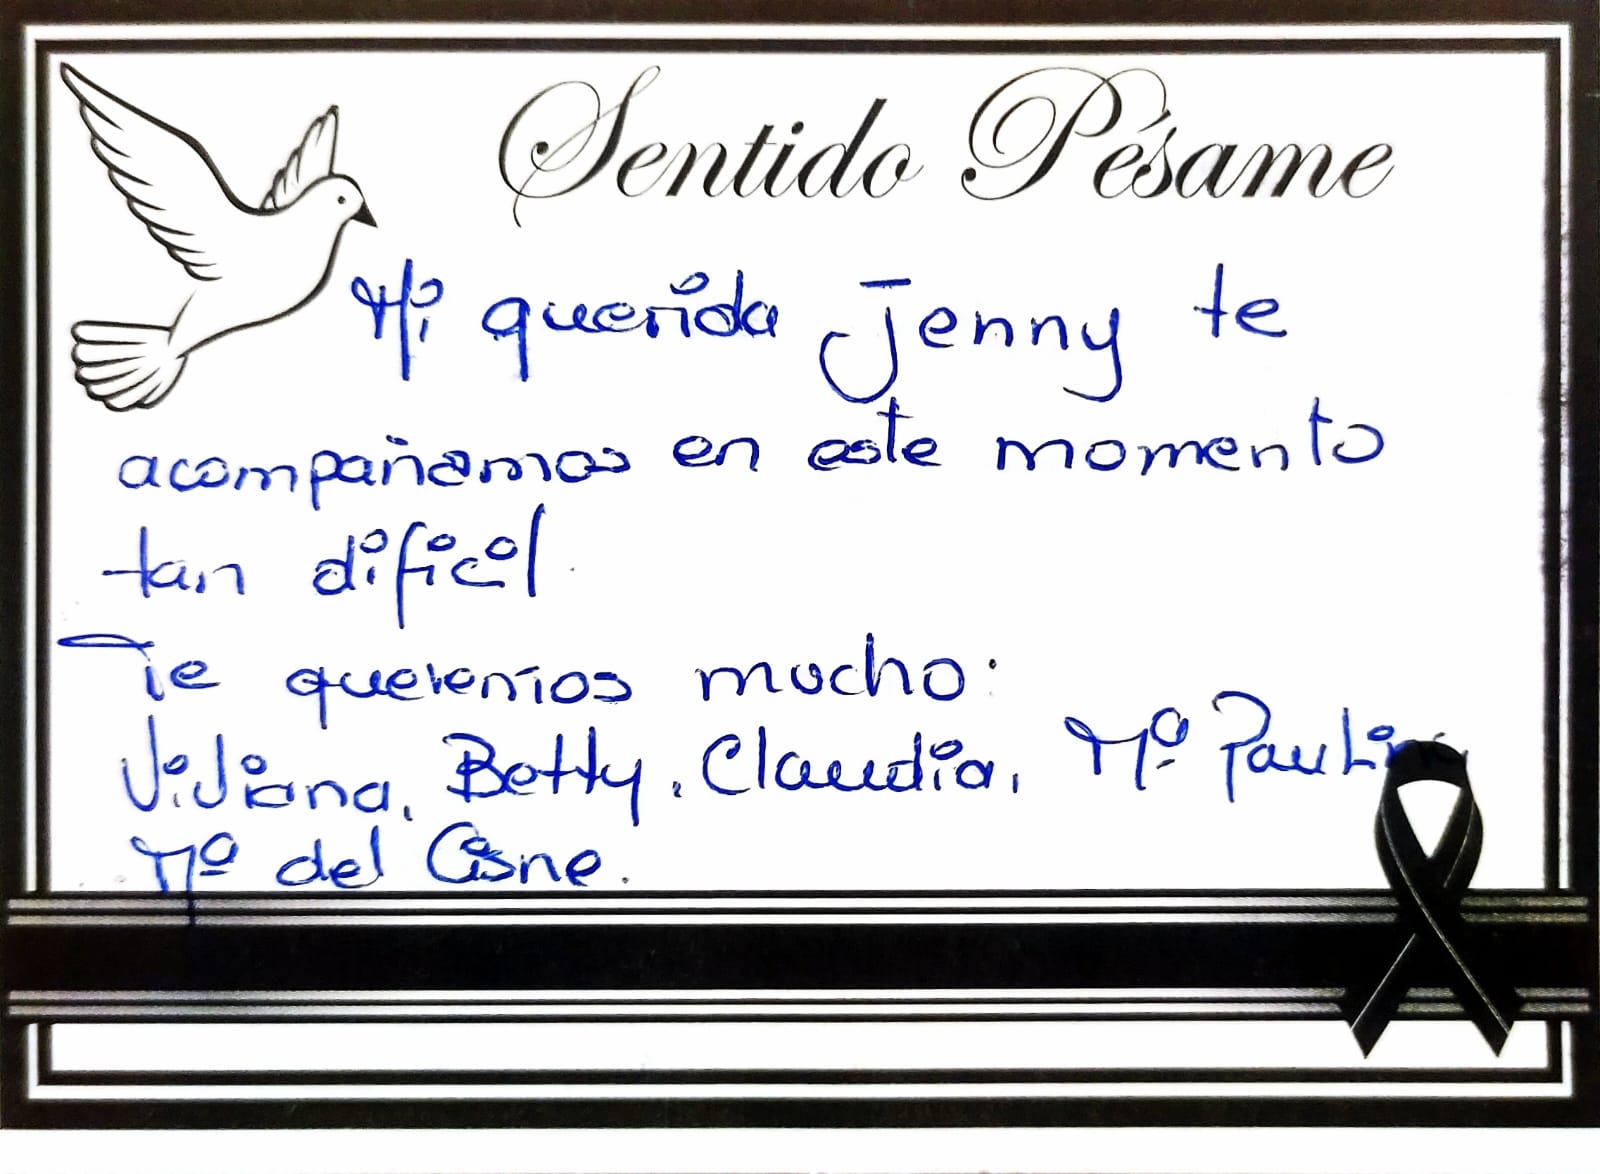 Sentido Pésame
Mi querida Jenny te
acompañamos en este momento
tan dificil
Te queremos mucho:
Viviana, Betty, Claudia, Mª Paulina
Mª del Cisne.